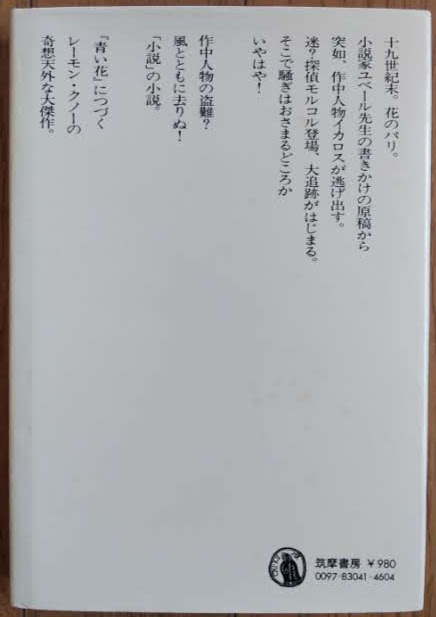 十九世紀末。花のパリ。
小説家ユベール先生の書きかけの原稿から
突如、作中人物イカロスが逃げ出す。
迷？探偵モルコル登場、大追跡がはじまる。
そこで騒ぎはおさまるどころか
いやはや！
作中人物の盗難？
風とともに去りぬ！
「小説」の小説。
『青い花』につづく
レーモン・クノーの
奇想天外な大傑作。
筑摩書房 ￥980
0097-83041-4604